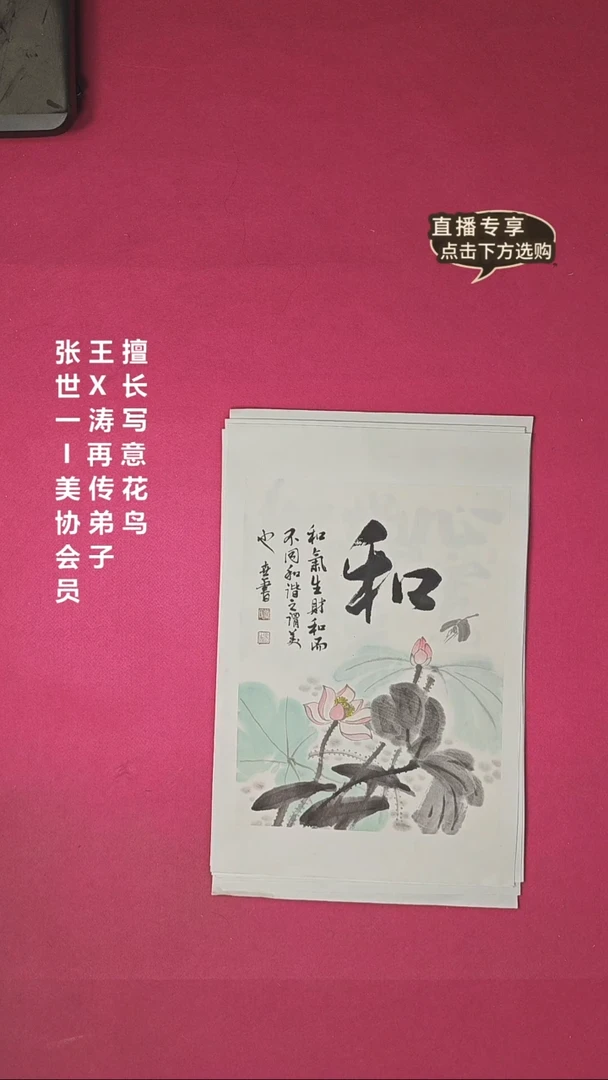 直播专享
点击下方选购
擅长写意花鸟
王X涛再传弟子
张世一一美协会员
和
和氣生財和而
不同和谐之謂美
也 世一書